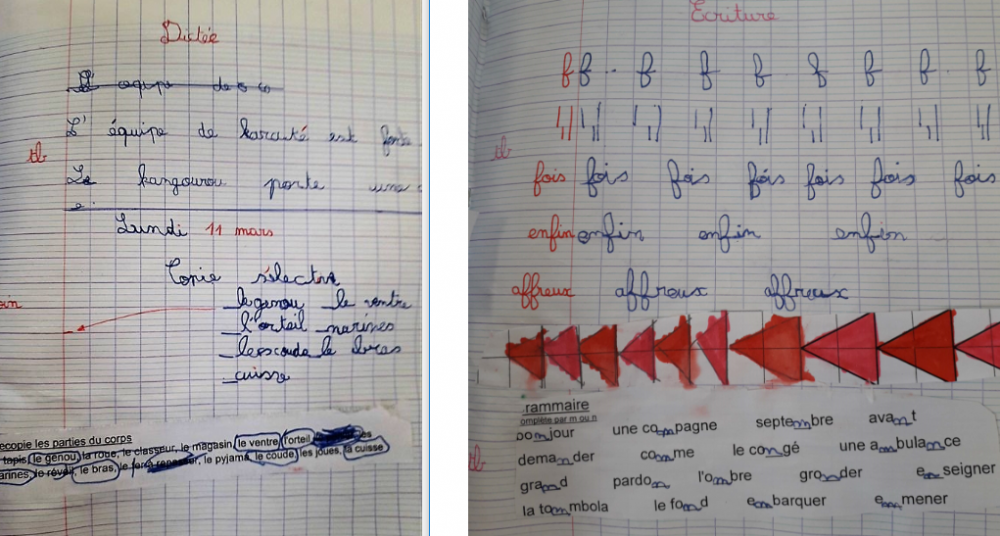 Dictée
L' équipe de karaté est forte
tb
Le kangourou porte une
Lundi 11 mars
Copie sélective
le genou le ventre
l'orteil narines
le coude le bras
cuisse
ecopie les parties du corps
tapis, le genou, la roue, le classeur, le magasin, le ventre, l'orteil
arines, le réveil, le bras, le, le pyjama, le coude, les joues, la cuisse
Ecriture
f f f f f f f f f
tb
fois fois fois fois fois fois fois
enfin enfin enfin enfin
affreux affreux affreux
rammaire
omplète par m ou n
bonjour une compagne septembre avant
demander comme le congé une ambulance
tb
grand pardon l'ombre gronder enseigner
la tombola le fond embarquer emmener